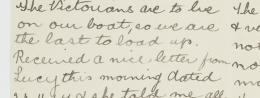 The Victorians are to live The
on our boat, so we are
the last to load up. not
Received a nice letter from
Lucy this morning dated
she told me all